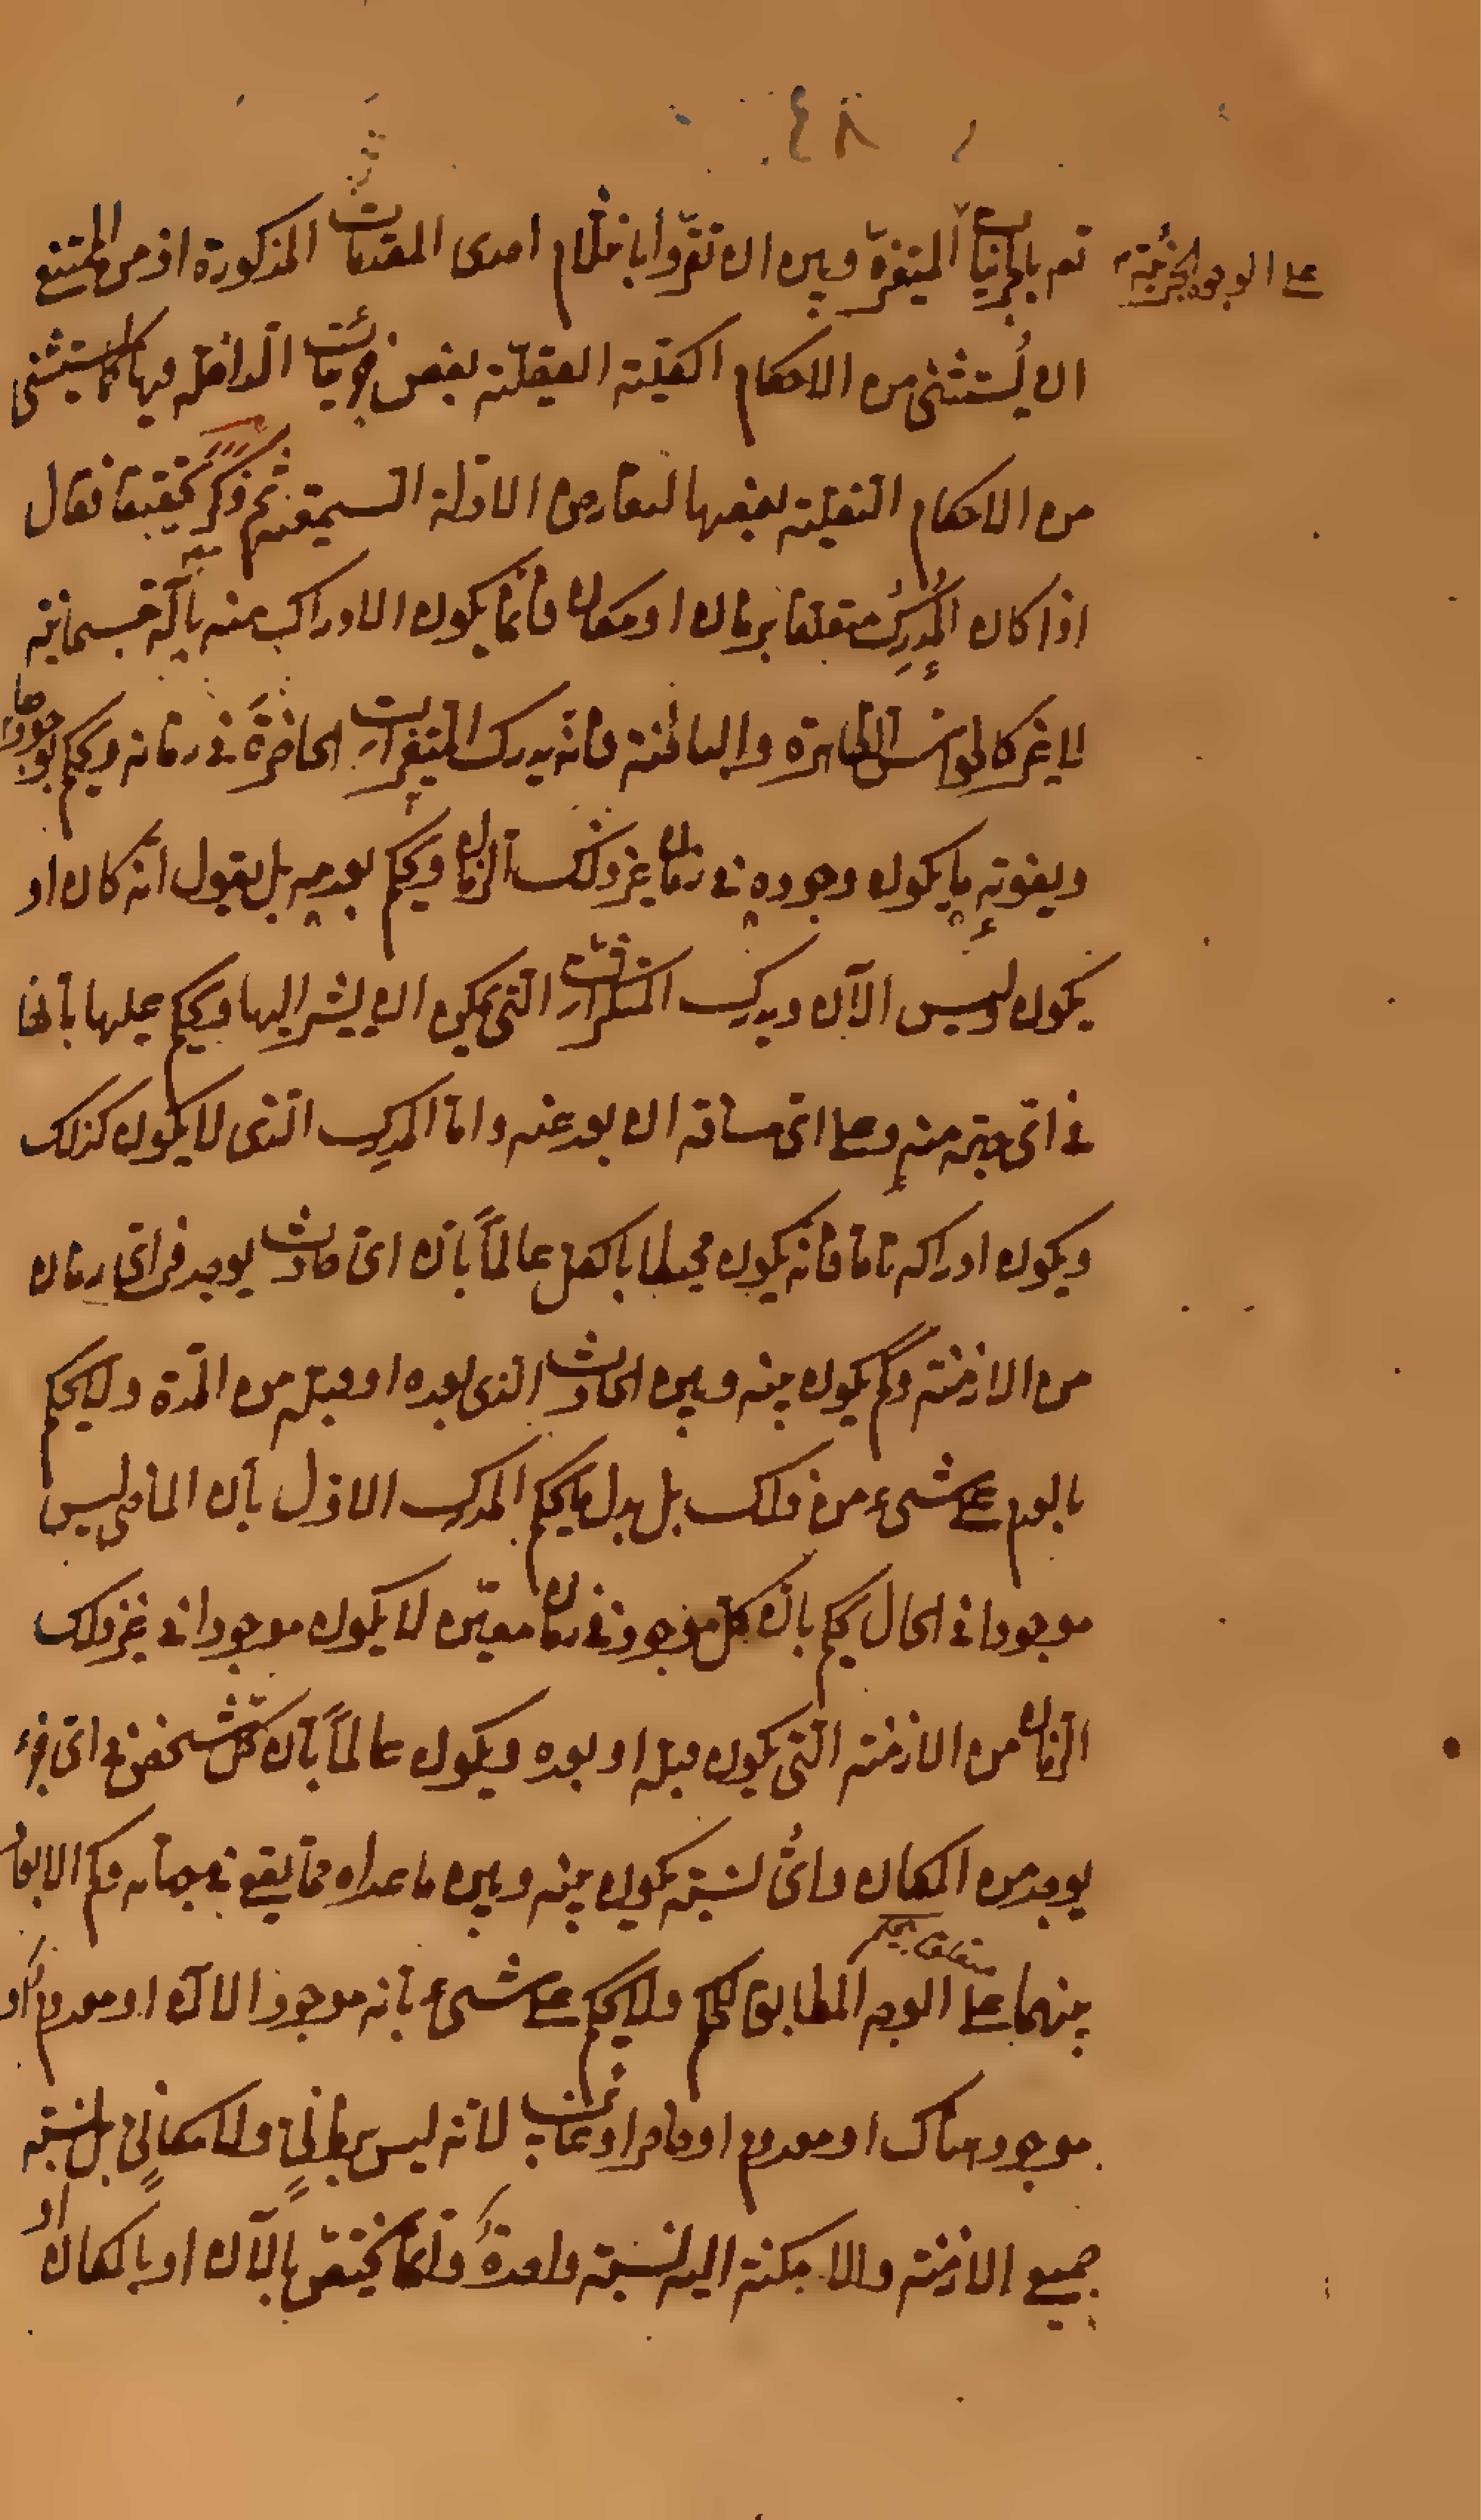 ٤٨
على الوجه الجزئي
تع بالجزئيات المتغيرة وبين ان تقروا بانثلام احدى المقدمات المذكورة اذ من الممتنع
ان يُستثنى من الاحكام الكلية العقلية بعض جزئيات الداخلة فيها كما يستثنى
من الاحكام النقلية بعضها لتعارض الادلة السمعية ثم ذكر تحقيقا فقال
اذا كان المُدرِك متعلقا بزمان او مكان فانما يكون الادراك منه بآلة جسمانية
لا غير كالحواس الظاهرة والباطنة فانه يدرك المتغيرات الحاضرة في زمانه ويحكم بوجودها
ويفوته ما يكون وجوده في زمان غير ذلك الزمان ويحكم بعدمه بل يقول انه كان او
يكون وليس الآن ويدرك المتكثرات التي يمكن ان يشير اليها ويحكم عليها بأنها
في اىّ جهة منه وعلى اىّ مسافة ان بعد عنه واما المدرِك الذى لا يكون كذلك
ويكون ادراكه تاما فانه يكون محيطا بالكل عالماً بأن اىّ حادث يوجد في اىّ زمان
من الازمنة وكم يكون بينه وبين الحادث الذى بعده او قبله من المدّة ولا يحكم
بالعدم على شىء من ذلك بل بدل ما يحكم المدرك الاوّل بأن الماضى ليس
موجودا في الحال يحكم بأن كل موجود في زمان معيّن لا يكون موجودا في غير ذلك
الزمان من الازمنة التي يكون قبله او بعده ويكون عالماً بأن كل شخص في اىّ جزء
يوجد من المكان واىُّ نسبة يكون بينه وبين ما عداه مما يقع في جهاته وكم الابعادُ
متعلق بيحكم
بينهما على الوجه المطابق للحكم ولا يحكم على شىء بأنه موجود الآن او معدوم او
موجود هناك او معدوم او حاضر او غائب لانه ليس بزمانىٍّ ولا مكانىٍّ بل نسبة
جميع الازمنة والامكنة اليه نسبة واحدةٌ وانما يختص بالآن او بالمكان او